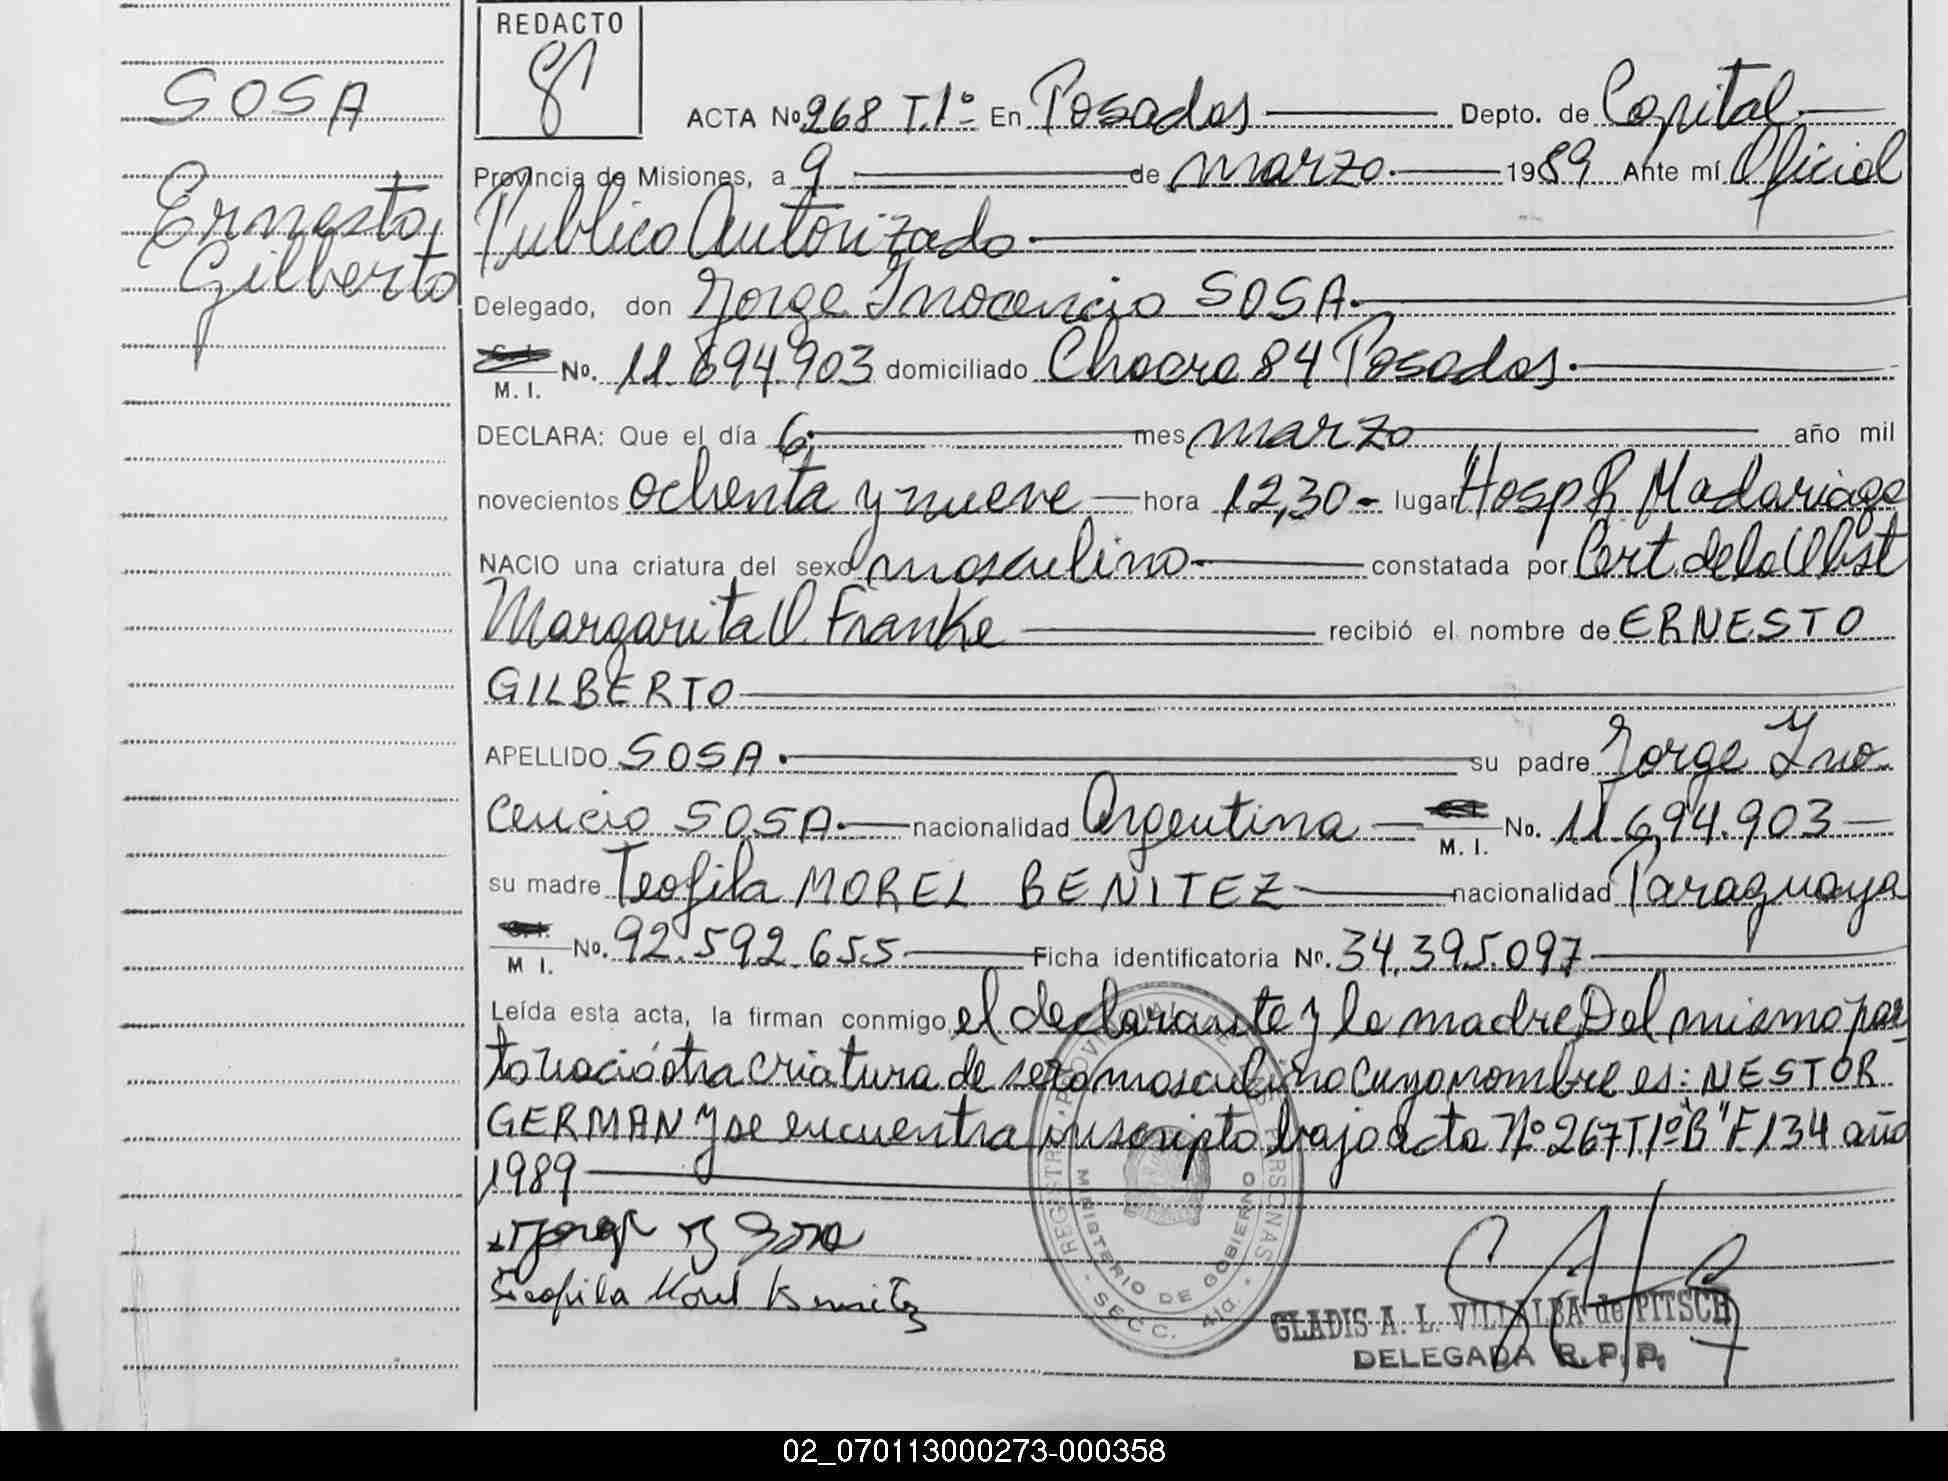 REDACTO
SOSA
Ernesto
Gilberto
ACTA No 268 T.1º En Posadas Depto. de Capital
Provincia de Misiones, a 9 de marzo 1989 Ante mí Oficial
Publico Autorizado
Delegado, don Jorge Inocencio SOSA
M. I. No. 11.694.903 domiciliado Chacra 84 Posadas
DECLARA: Que el día 6 mes marzo año mil
novecientos ochenta y nueve hora 12,30 lugar Hosp R Madariaga
NACIO una criatura del sexo masculino constatada por Cert. de la Obst
Margarita O. Franke recibió el nombre de ERNESTO
GILBERTO
APELLIDO SOSA su padre Jorge Ino
cencio SOSA nacionalidad Argentina M. I. No. 11.694.903
su madre Teofila MOREL BENITEZ nacionalidad Paraguaya
M I. No. 92.592.655 Ficha identificatoria No. 34.395.097
Leída esta acta, la firman conmigo el declarante y la madre Del mismo par
to nació otra criatura de sexo masculino cuyo nombre es: NESTOR
GERMAN y se encuentra inscripto bajo acta Nº 267 T1º "B" F134 año
1989
Teofila Morel Benitez
REGISTRO PROVINCIAL DE LAS PERSONAS
MINISTERIO DE GOBIERNO
SECC. 41a.
GLADIS A. L. VILLALBA de PITSCH
DELEGADA R. P. P.
02_070113000273-000358